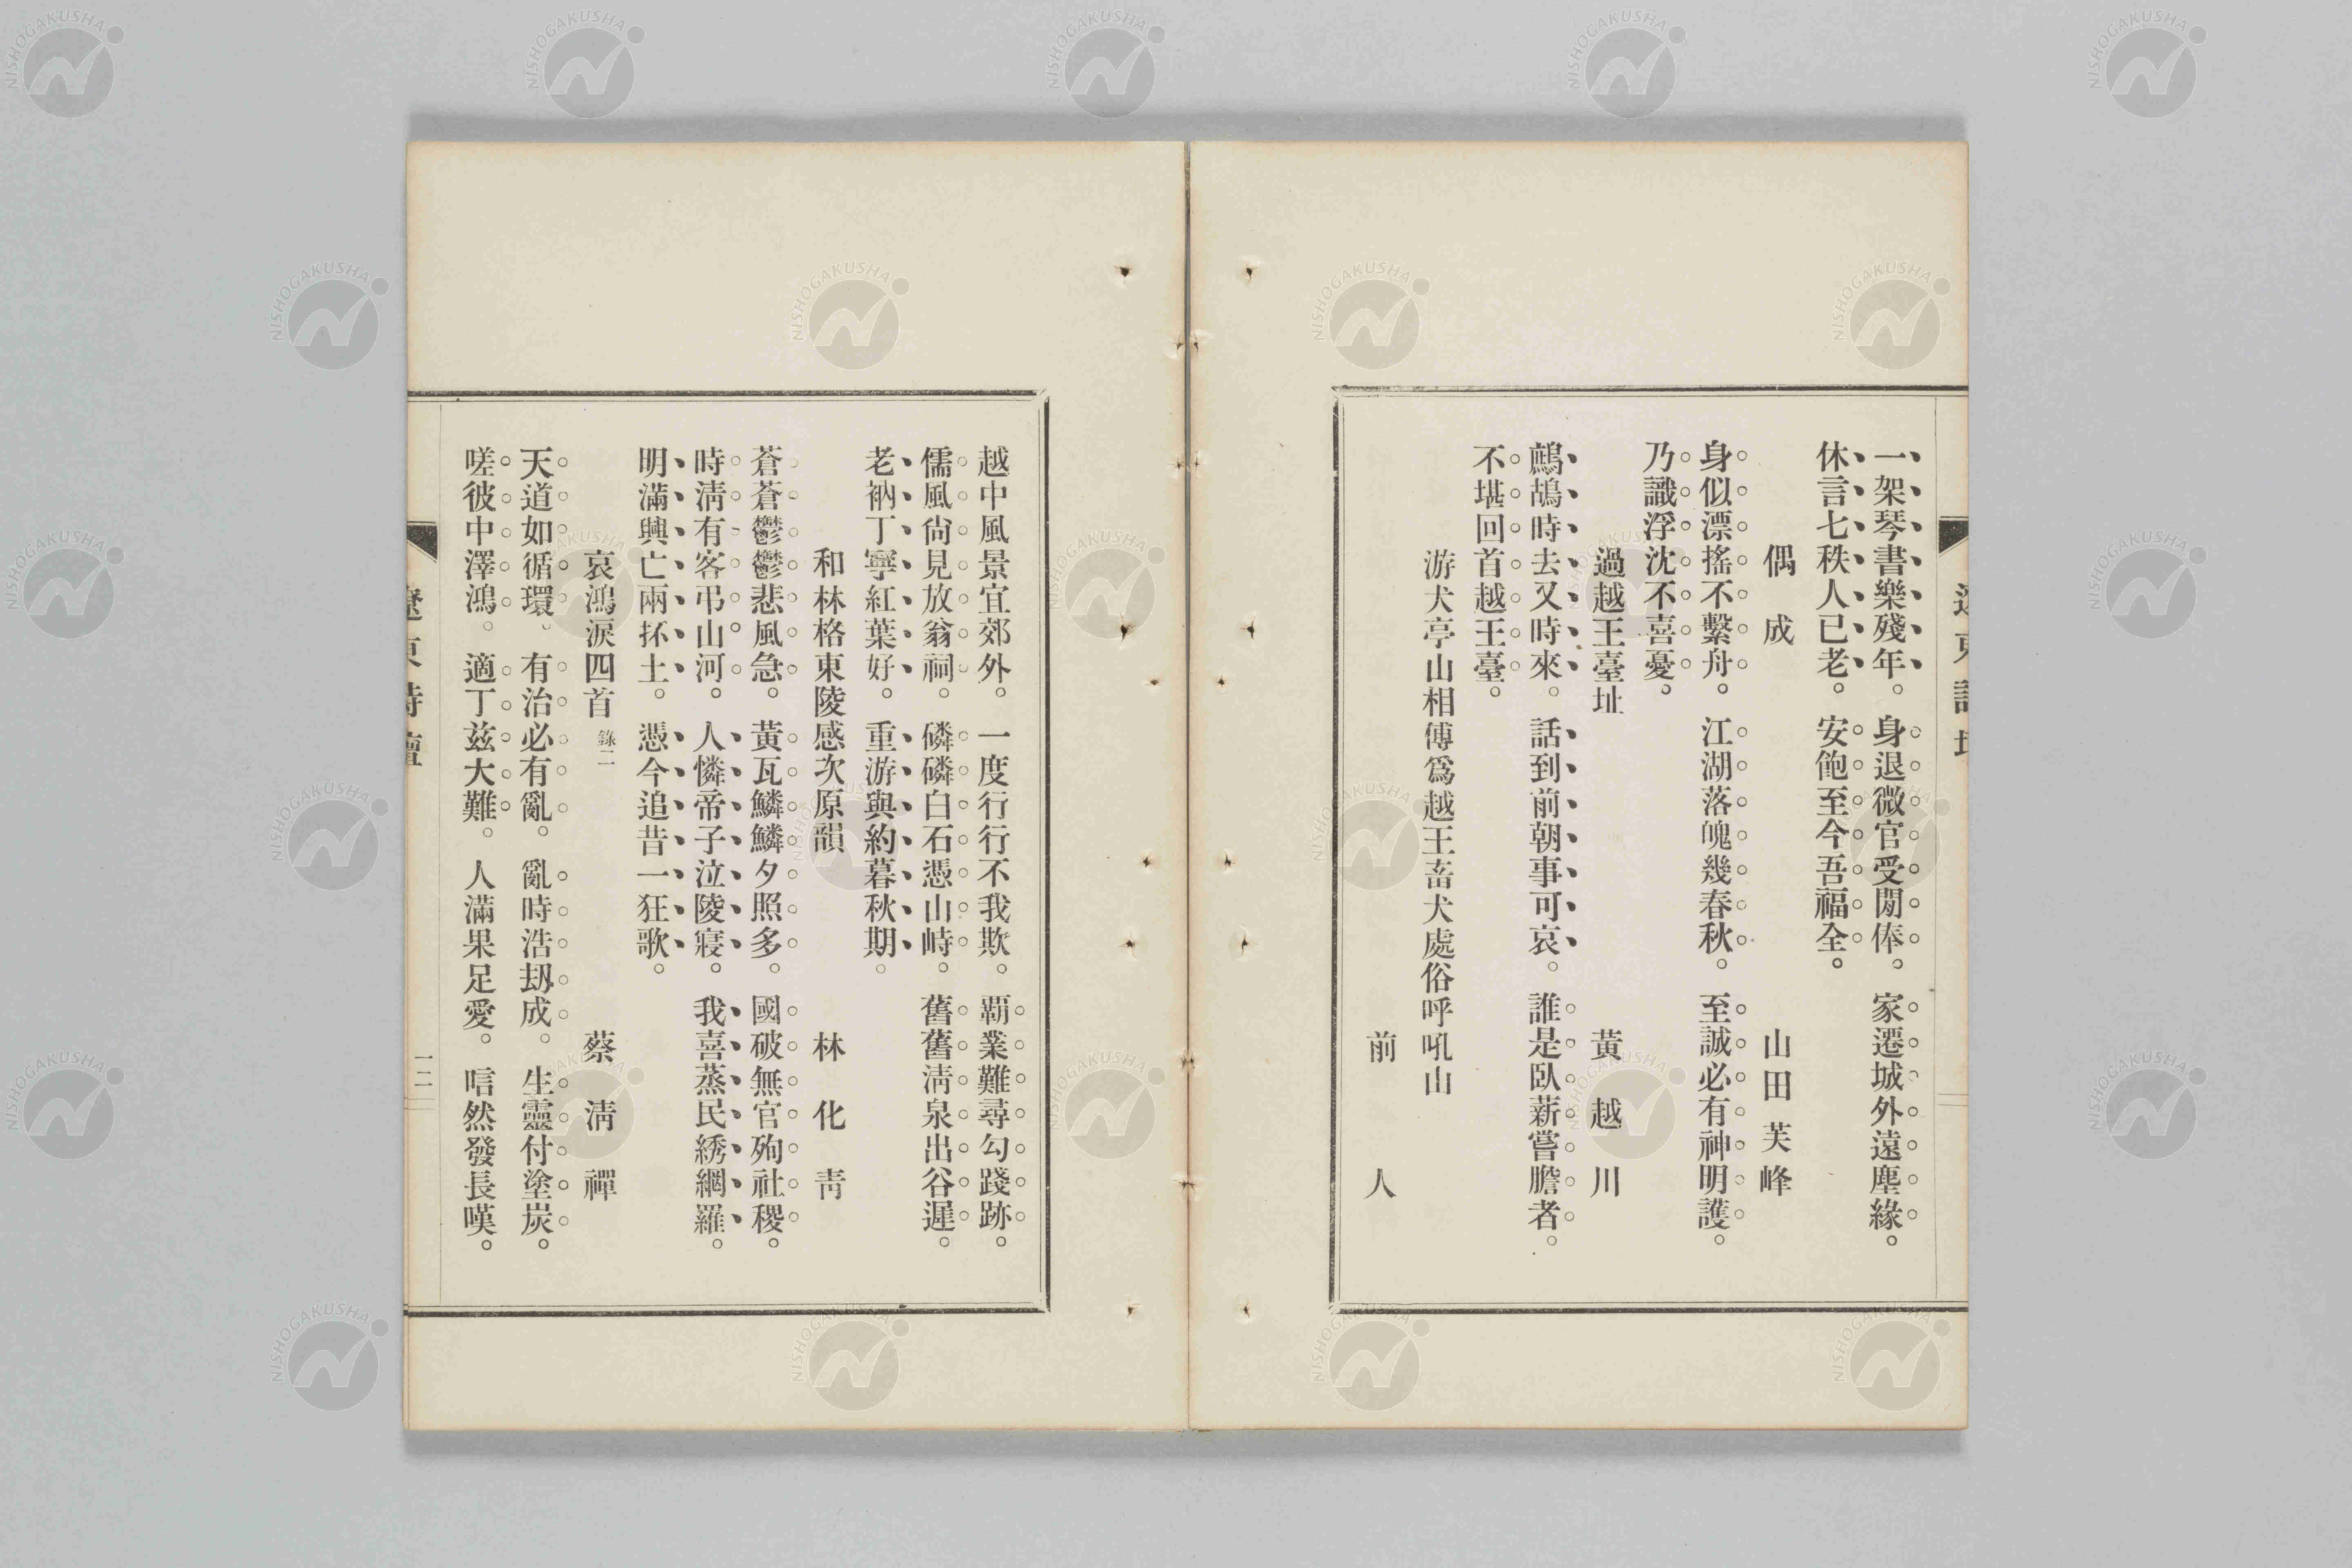 一架琴書樂殘年。身退微官受閒俸。家遷城外遠塵緣。
休言七秩人已老。安飽至今吾福全。
偶成 山田芙峰
身似漂搖不繫舟。江湖落魄幾春秋。至誠必有神明護。
乃識浮沈不喜憂。
過越王臺址 黃越川
鷓鴣時去又時來。話到前朝事可哀。誰是臥薪嘗膽者。
不堪回首越王臺。
游犬亭山相傳爲越王畜犬處俗呼吼山
前人
越中風景宜郊外。一度行行不我欺。覇業難尋勾踐跡。
儒風尙見放翁祠。磷磷白石憑山峙。舊舊淸泉出谷遲。
老衲丁寧紅葉好。重游與約暮秋期。
和林格東陵感次原韻 林化靑
蒼蒼鬱鬱悲風急。黃瓦鱗鱗夕照多。國破無官殉社稷。
時淸有客弔山河。人憐帝子泣陵寢。我喜蒸民綉網羅。
明滿興亡兩抔土。憑今追昔一狂歌。
哀鴻淚四首 錄二 蔡淸禪
天道如循環。有治必有亂。亂時浩刼成。生靈付塗炭。
嗟彼中澤鴻。適丁茲大難。人滿果足愛。唁然發長嘆。
遼東詩壇
一二
NISHOGAKUSHA